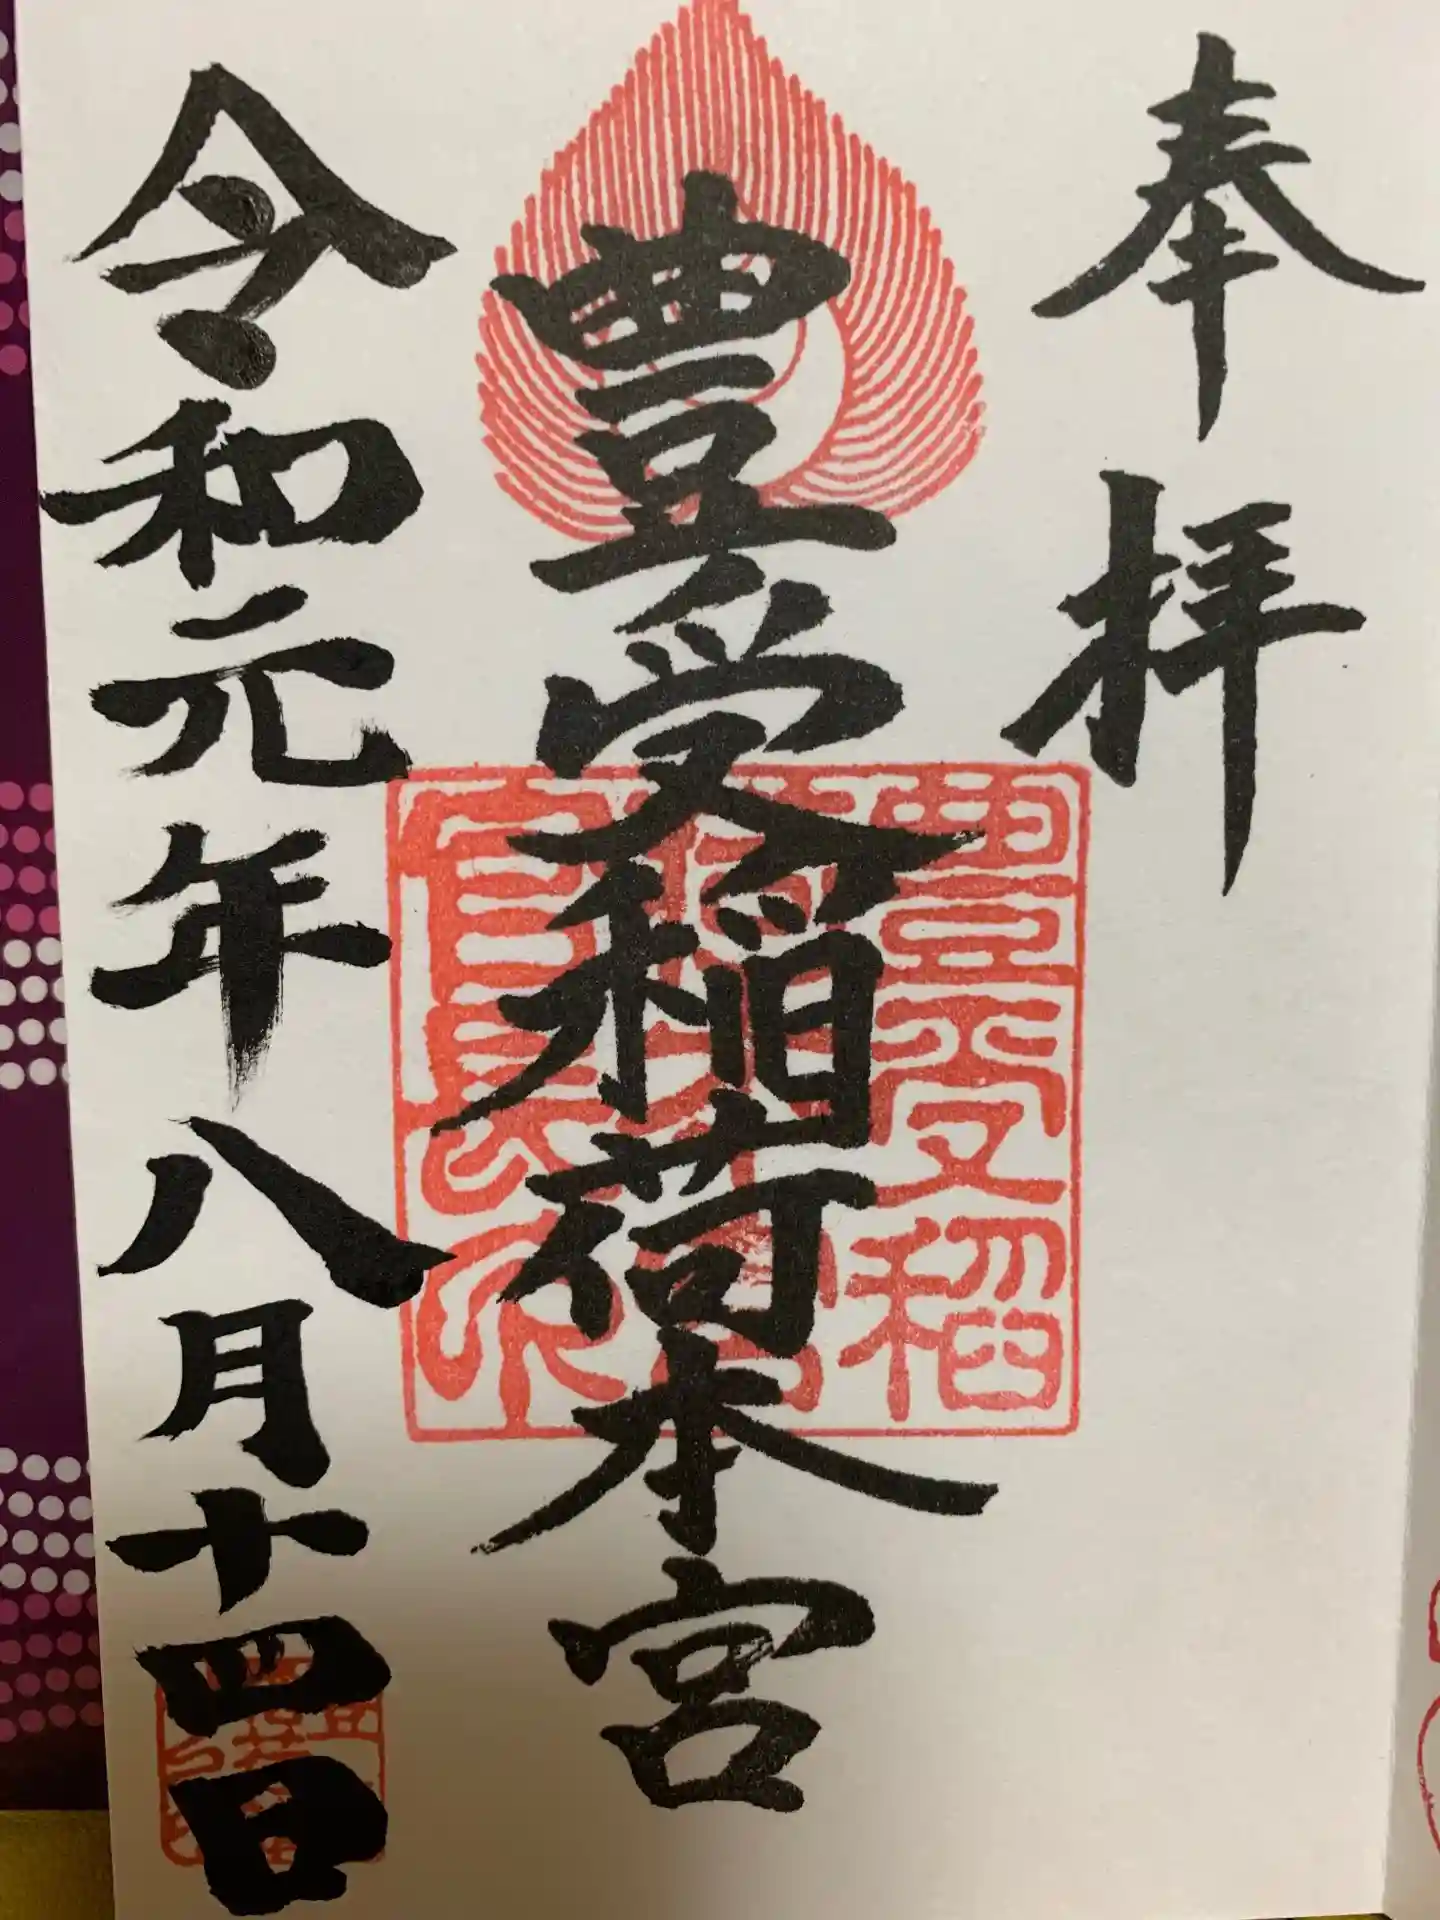 奉拝
豊受稲荷本宮
令和元年八月十四日